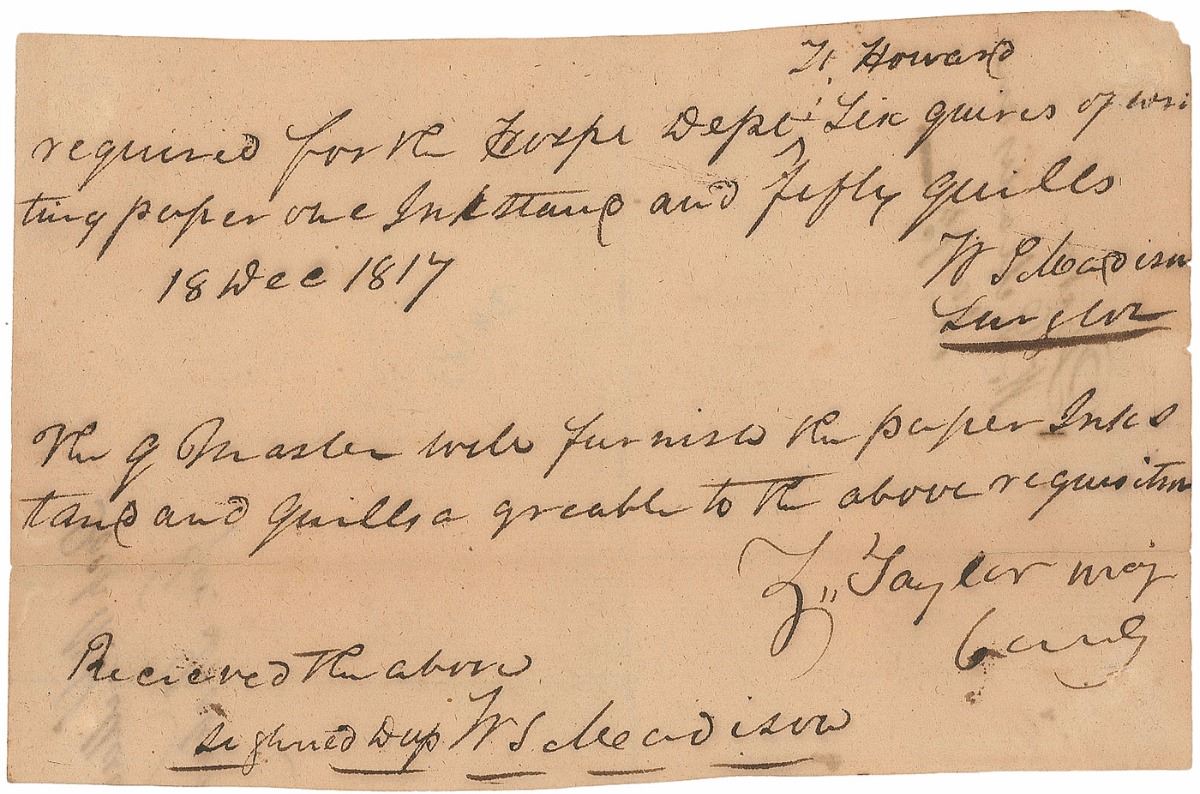 Ft. Howard
required for the Hospt Dept Six quires of wri
ting paper one Inkstand and fifty quills
18 Dec 1817
W S Madison
Surgeon
The Q Master will furnish the paper Inks
tand and Quills a greable to the above requisition
Z,, Taylor maj
Comdg
Recieved the above
Signed Dup W S Madison